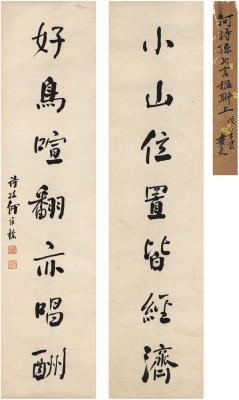 小山位置皆經濟
好鳥喧翻亦唱酬
詩孫何維樸
何詩孫七言楹聯上